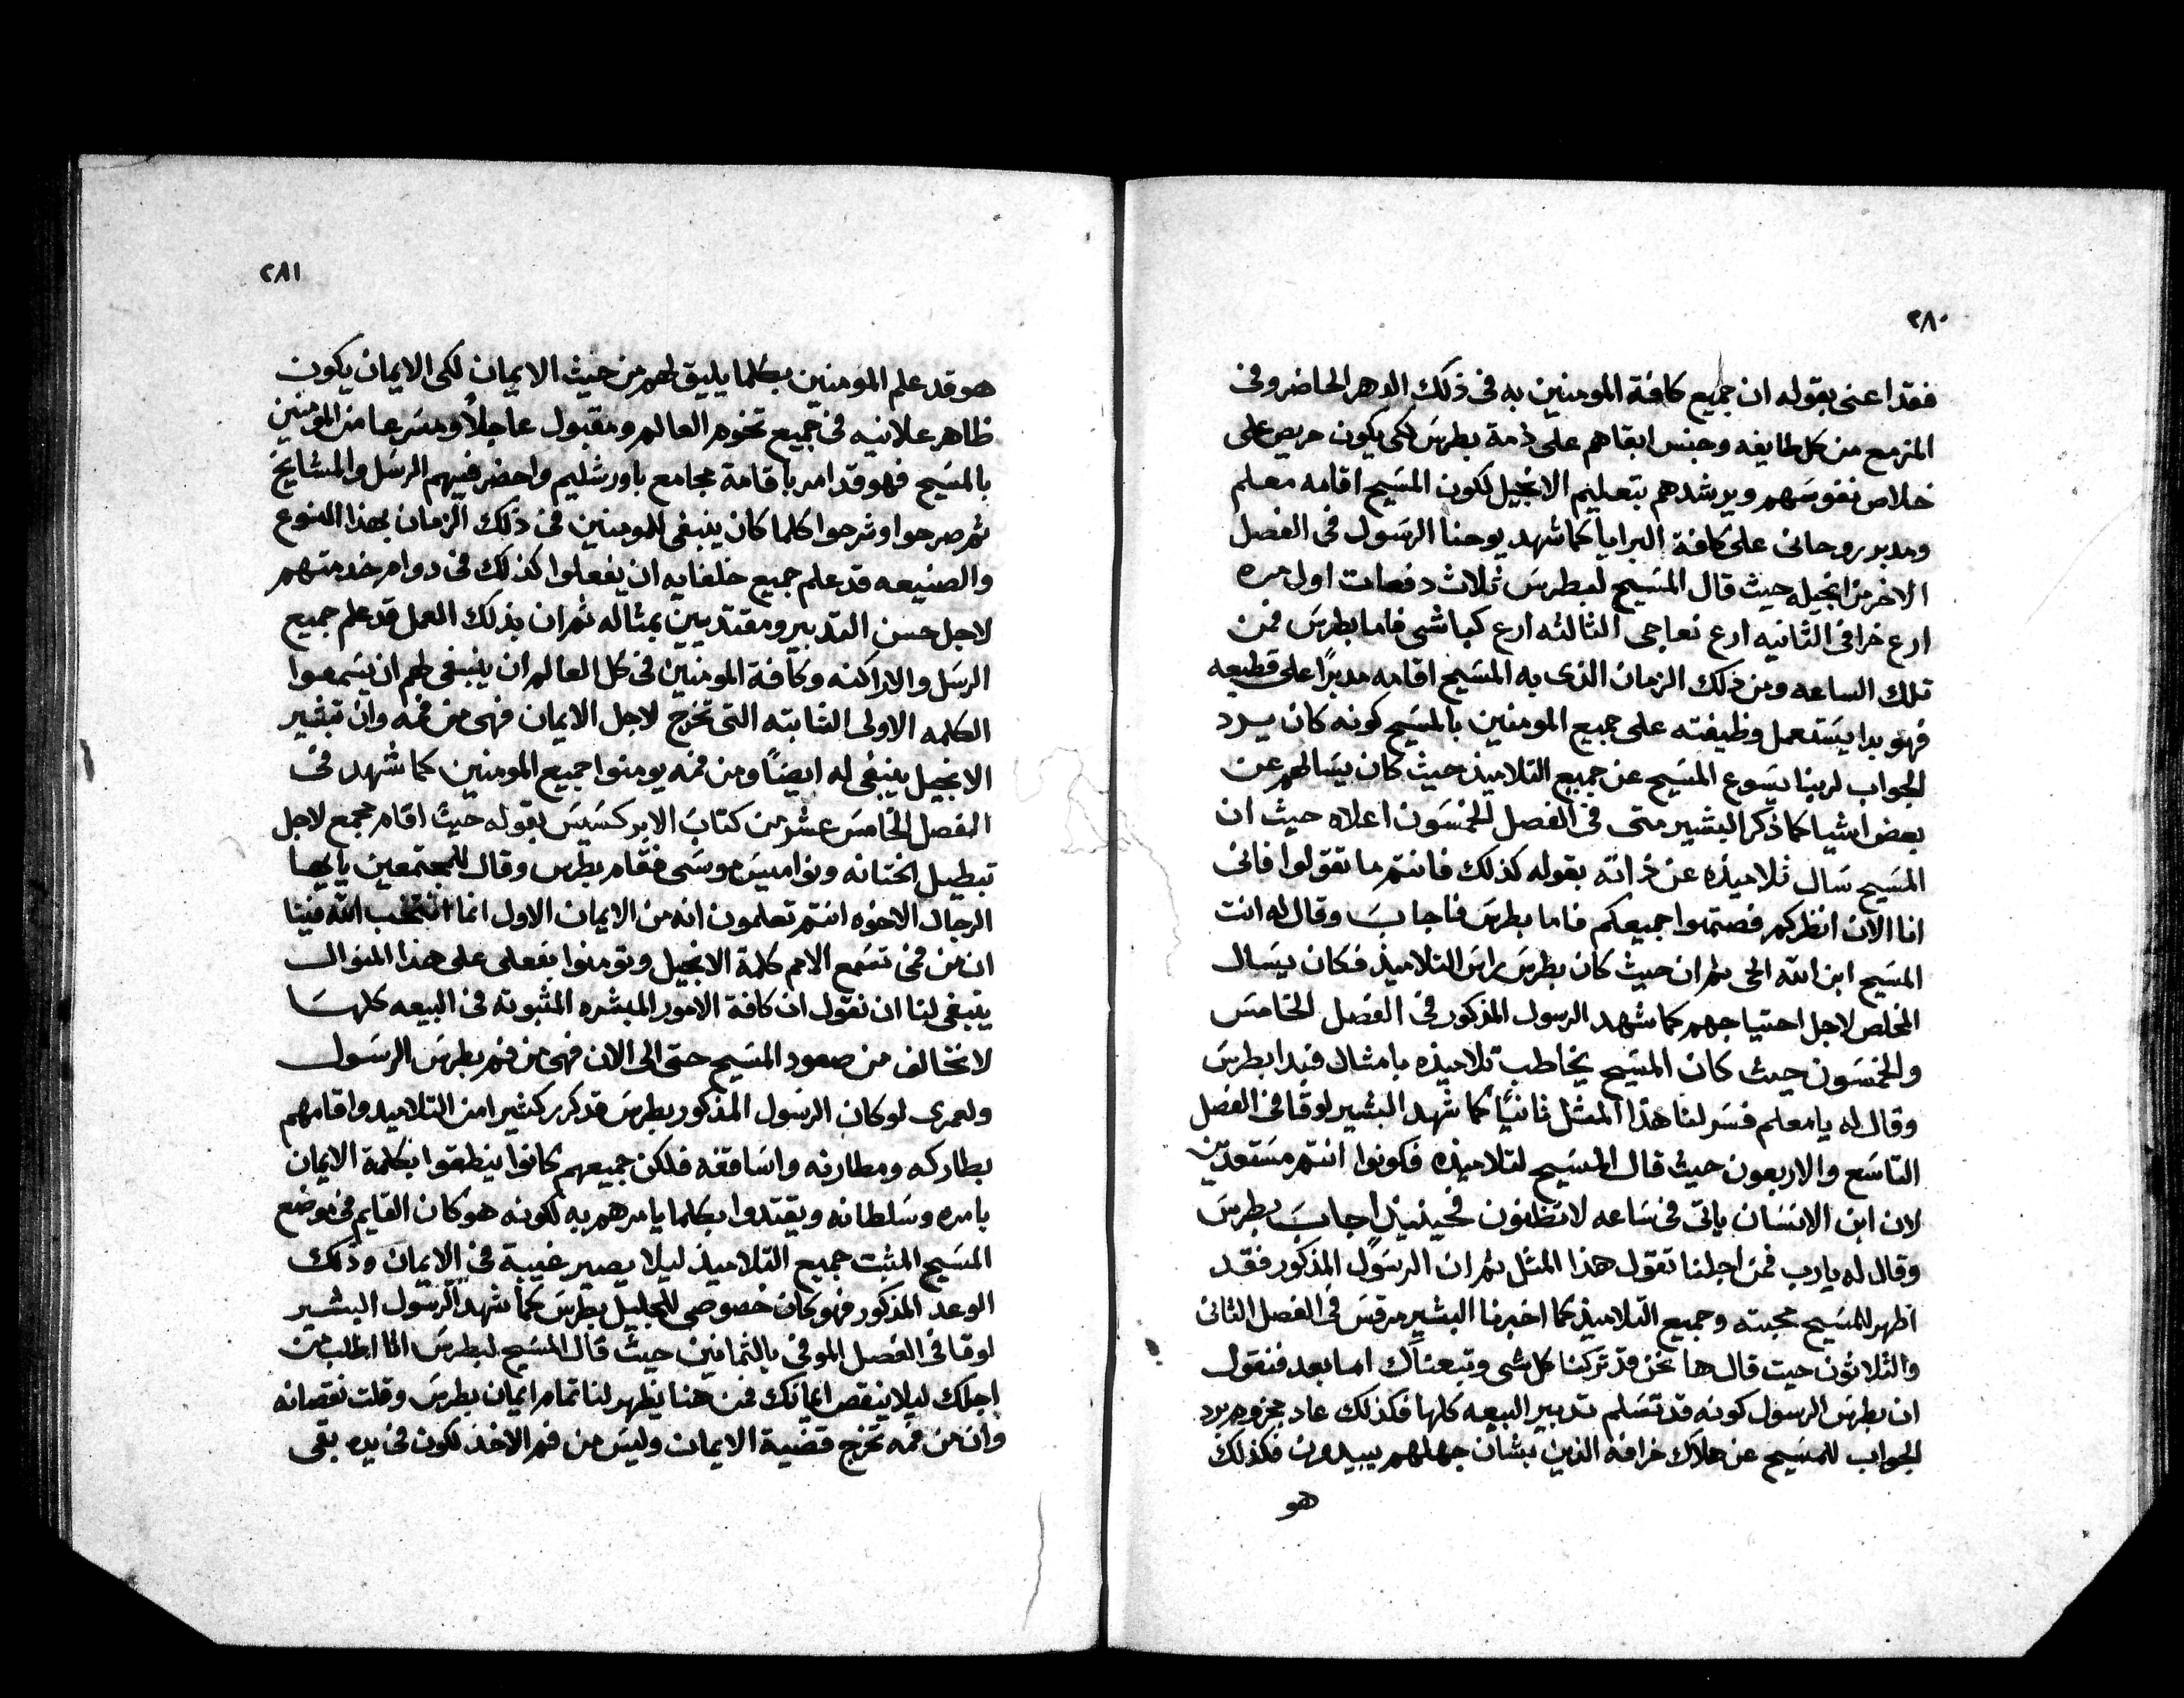 ٢٨٠
فقد اعنى بقوله ان جميع كافة المومنين به فى ذلك الدهر الحاضر وفى
المزمع من كل طايفه وجنس ابقاهم على ذمة بطرس لكى يكون حريص على
خلاص نفوسهم ويرشدهم بتعليم الانجيل لكون المسيح اقامه معلم
ومدبر روحانى على كافة البرايا كما شهد يوحنا الرسول فى الفصل
الاخر من انجيله حيث قال المسيح لبطرس ثلاث دفعات اول مره
ارع خرافى الثانيه ارع نعاجى الثالثه ارع كباشى فاما بطرس فمن
تلك الساعه ومن ذلك الزمان الذى به المسيح اقامه مدبرًا على قطيعه
فهو بدا يستعمل وظيفته على جميع المومنين بالمسيح كونه كان يرد
الجواب لربنا يسوع المسيح عن جميع التلاميذ حيث كان يسالهم عن
بعض اشيا كما ذكر البشير متى فى الفصل الخمسون اعلاه حيث ان
المسيح سال تلاميذه عن ذاته بقوله كذلك فانتم ما تقولوا فانى
انا الان انظركم فصتموا جميعكم فاما بطرس فاجاب وقال له انت
المسيح ابن الله الحى ثم ان حيث كان بطرس راس التلاميذ فكان يسال
المخلص لاجل احتياجهم كما شهد الرسول المذكور فى الفصل الخامس
والخمسون حيث كان المسيح يخاطب تلاميذه بامثال فبدا بطرس
وقال له يا معلم فسر لنا هذا المثل ثانيًا كما شهد البشير لوقا فى الفصل
التاسع والاربعون حيث قال المسيح لتلاميذه فكونوا انتم مستعدين
لان ابن الانسان ياتى فى ساعه لا تظنون فحينيذٍ اجاب بطرس
وقال له يا رب فمن اجلنا تقول هذا المثل ثم ان الرسول المذكور فقد
اظهر للمسيح محبته وجميع التلاميذ كما اخبرنا البشير مرقس فى الفصل الثانى
والثلاثون حيت قال ها نحن قد تركنا كل شى وتبعناك اما بعد فنقول
ان بطرس الرسول كونه قد تسلم تدبير البيعه كلها فكذلك عاد مجزوم يرد
الجواب للمسيح عن هلاك خرافه الذين بشان جهلهم يبيدون فكذلك
هو
٢٨١
هو قد علم المومنين بكلما يليق لهم من حيث الايمان لكى الايمان يكون
ظاهر علانيه فى جميع تخوم العالم ومقبول عاجلًا ومسرعا من المومنين
بالمسيح فهو قد امر باقامة مجامع باورشليم واحضر فيهم الرسل والمشايخ
ثم صرحوا وشرحوا كلما كان ينبغى للمومنين فى ذلك الزمان بهذا النوع
والصنيعه قد علم جميع خلفايه ان يفعلوا كذلك فى دوام خدمتهم
لاجل حسن التدبير ومقتديين بمثاله ثم ان بذلك العمل قد علم جميع
الرسل والاراكنه وكافة المومنين فى كل العالم ان ينبغى لهم ان يسمعوا
الكلمه الاولى الثابته التى تخرج لاجل الايمان فهى من فمه وان تبشير
الانجيل ينبغى له ايضًا ومن فمه يومنوا جميع المومنين كما شهد فى
الفصل الخامس عشر من كتاب الابركسيس بقوله حيث اقام مجمع لاجل
تبطيل الختانه ونواميس موسى فقام بطرس وقال للمجتمعين يا ايها
الرجال الاخوه انتم تعلمون انه من الايمان الاول انما انتخب الله فينا
ان من فمى تسمع الامم كلمة الانجيل وتومنوا بفعلى على هذا المنوال
ينبغى لنا ان نقول ان كافة الامور المبشره المثبوته فى البيعه كلها
لا تخالف من صعود المسيح حتى الى الان فهى من فم بطرس الرسول
ولعمرى لو كان الرسول المذكور بطرس قد كرر كثيرا من التلاميد واقامهم
بطاركه ومطارنه واساقفه فلكن جميعهم كانوا ينطقوا بكلمة الايمان
بامره وسلطانه ويقتدوا بكلما يامرهم به لكونه هو كان القايم فى موضع
المسيح المثبت جميع التلاميذ ليلا يصير غيبة فى الايمان وذلك
الوعد المذكور فهو كان خصوصى للجليل بطرس كما شهد الرسول البشير
لوقا فى الفصل الموفى بالثمانين حيث قال المسيح لبطرس انا اطلب من
اجلك ليلا ينقص ايمانك فمن هنا يظهر لنا تمام ايمان بطرس وقلت نقصانه
وان من فمه تخرج قضية الايمان وليس من فم الاخذ لكون فى يده بقى